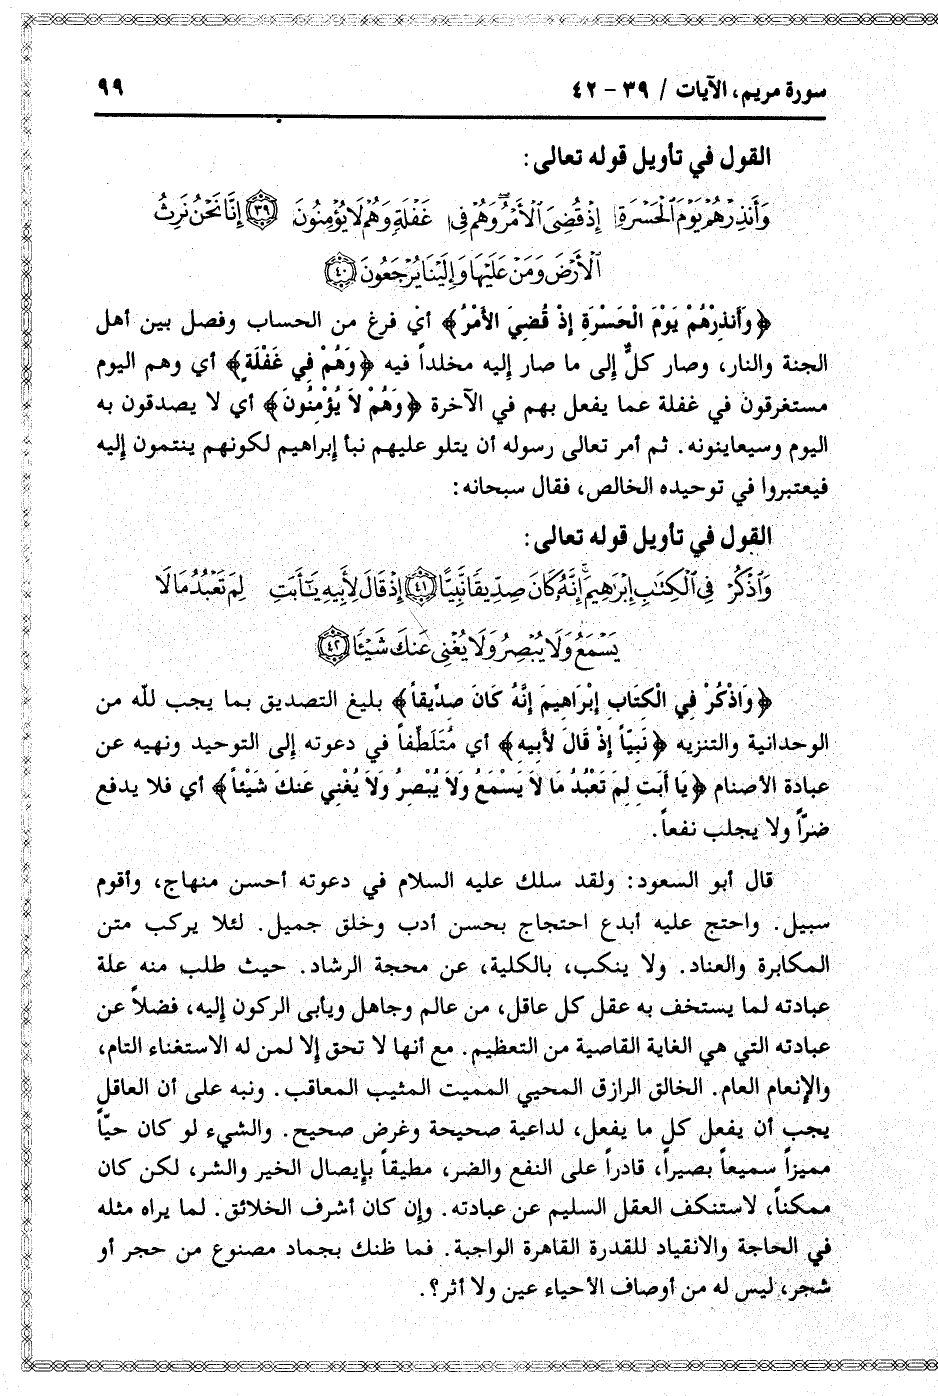 سورة مريم، الآيات / ٣٩ - ٤٢
٩٩
القول في تأويل قوله تعالى:
وَأَنذِرْهُمْ يَوْمَ ٱلْحَسْرَةِ إِذْ قُضِىَ ٱلْأَمْرُ وَهُمْ فِى غَفْلَةٍ وَهُمْ لَا يُؤْمِنُونَ ٣٩ إِنَّا نَحْنُ نَرِثُ
ٱلْأَرْضَ وَمَنْ عَلَيْهَا وَإِلَيْنَا يُرْجَعُونَ ٤٠
﴿وَأَنذِرْهُمْ يَوْمَ الْحَسْرَةِ إِذْ قُضِيَ الأَمْرُ﴾ أي فرغ من الحساب وفصل بين أهل
الجنة والنار، وصار كلٌّ إلى ما صار إليه مخلداً فيه ﴿وَهُمْ فِي غَفْلَةٍ﴾ أي وهم اليوم
مستغرقون في غفلة عما يفعل بهم في الآخرة ﴿وَهُمْ لاَ يُؤْمِنُونَ﴾ أي لا يصدقون به
اليوم وسيعاينونه. ثم أمر تعالى رسوله أن يتلو عليهم نبأ إبراهيم لكونهم ينتمون إليه
فيعتبروا في توحيده الخالص، فقال سبحانه:
القول في تأويل قوله تعالى:
وَٱذْكُرْ فِى ٱلْكِتَٰبِ إِبْرَٰهِيمَ إِنَّهُۥ كَانَ صِدِّيقًا نَّبِيًّا ٤١ إِذْ قَالَ لِأَبِيهِ يَٰٓأَبَتِ لِمَ تَعْبُدُ مَا لَا
يَسْمَعُ وَلَا يُبْصِرُ وَلَا يُغْنِى عَنكَ شَيْـًٔا ٤٢
﴿وَاذْكُرْ فِي الْكِتَابِ إِبْرَاهِيمَ إِنَّهُ كَانَ صِدِّيقاً﴾ بليغ التصديق بما يجب لله من
الوحدانية والتنزيه ﴿نَبِيّاً إِذْ قَالَ لأَبِيهِ﴾ أي مُتَلَطِّفاً في دعوته إلى التوحيد ونهيه عن
عبادة الأصنام ﴿يَا أَبَتِ لِمَ تَعْبُدُ مَا لاَ يَسْمَعُ وَلاَ يُبْصِرُ وَلاَ يُغْنِي عَنكَ شَيْئاً﴾ أي فلا يدفع
ضرّاً ولا يجلب نفعاً.
قال أبو السعود: ولقد سلك عليه السلام في دعوته أحسن منهاج، وأقوم
سبيل. واحتج عليه أبدع احتجاج بحسن أدب وخلق جميل. لئلا يركب متن
المكابرة والعناد. ولا ينكب، بالكلية، عن محجة الرشاد. حيث طلب منه علة
عبادته لما يستخف به عقل كل عاقل، من عالم وجاهل ويأبى الركون إليه، فضلاً عن
عبادته التي هي الغاية القاصية من التعظيم. مع أنها لا تحق إلا لمن له الاستغناء التام،
والإنعام العام. الخالق الرازق المحيي المميت المثيب المعاقب. ونبه على أن العاقل
يجب أن يفعل كل ما يفعل، لداعية صحيحة وغرض صحيح. والشيء لو كان حيّاً
مميزاً سميعاً بصيراً، قادراً على النفع والضر، مطيقاً بإيصال الخير والشر، لكن كان
ممكناً، لاستنكف العقل السليم عن عبادته. وإن كان أشرف الخلائق. لما يراه مثله
في الحاجة والانقياد للقدرة القاهرة الواجبة. فما ظنك بجماد مصنوع من حجر أو
شجر، ليس له من أوصاف الأحياء عين ولا أثر؟.